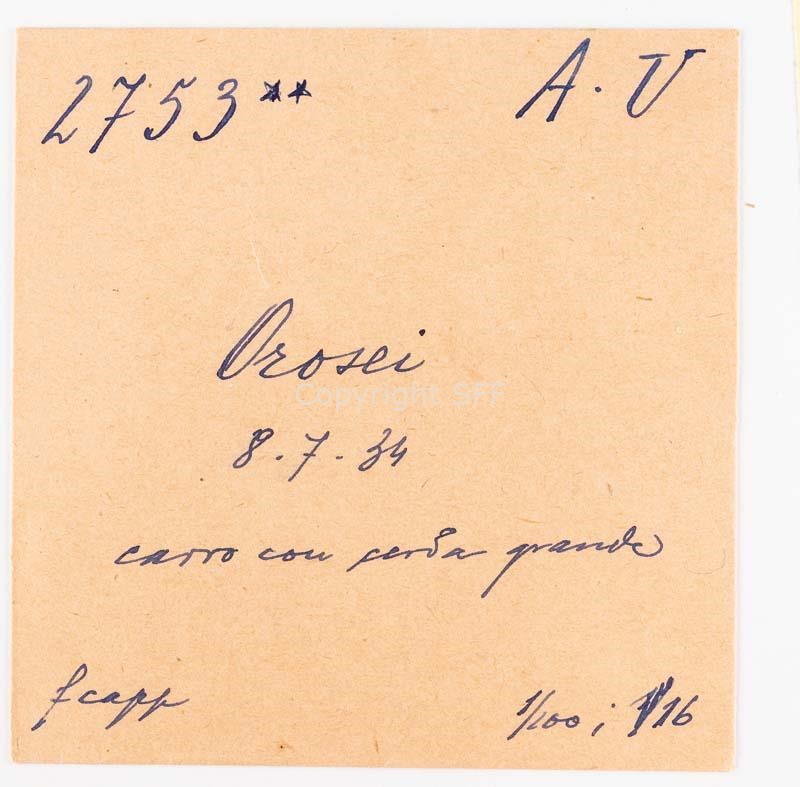 2753** A. V
Orosei
Copyright SFF
8.7.34
carro con cerda grande
f capp
1/100; 16